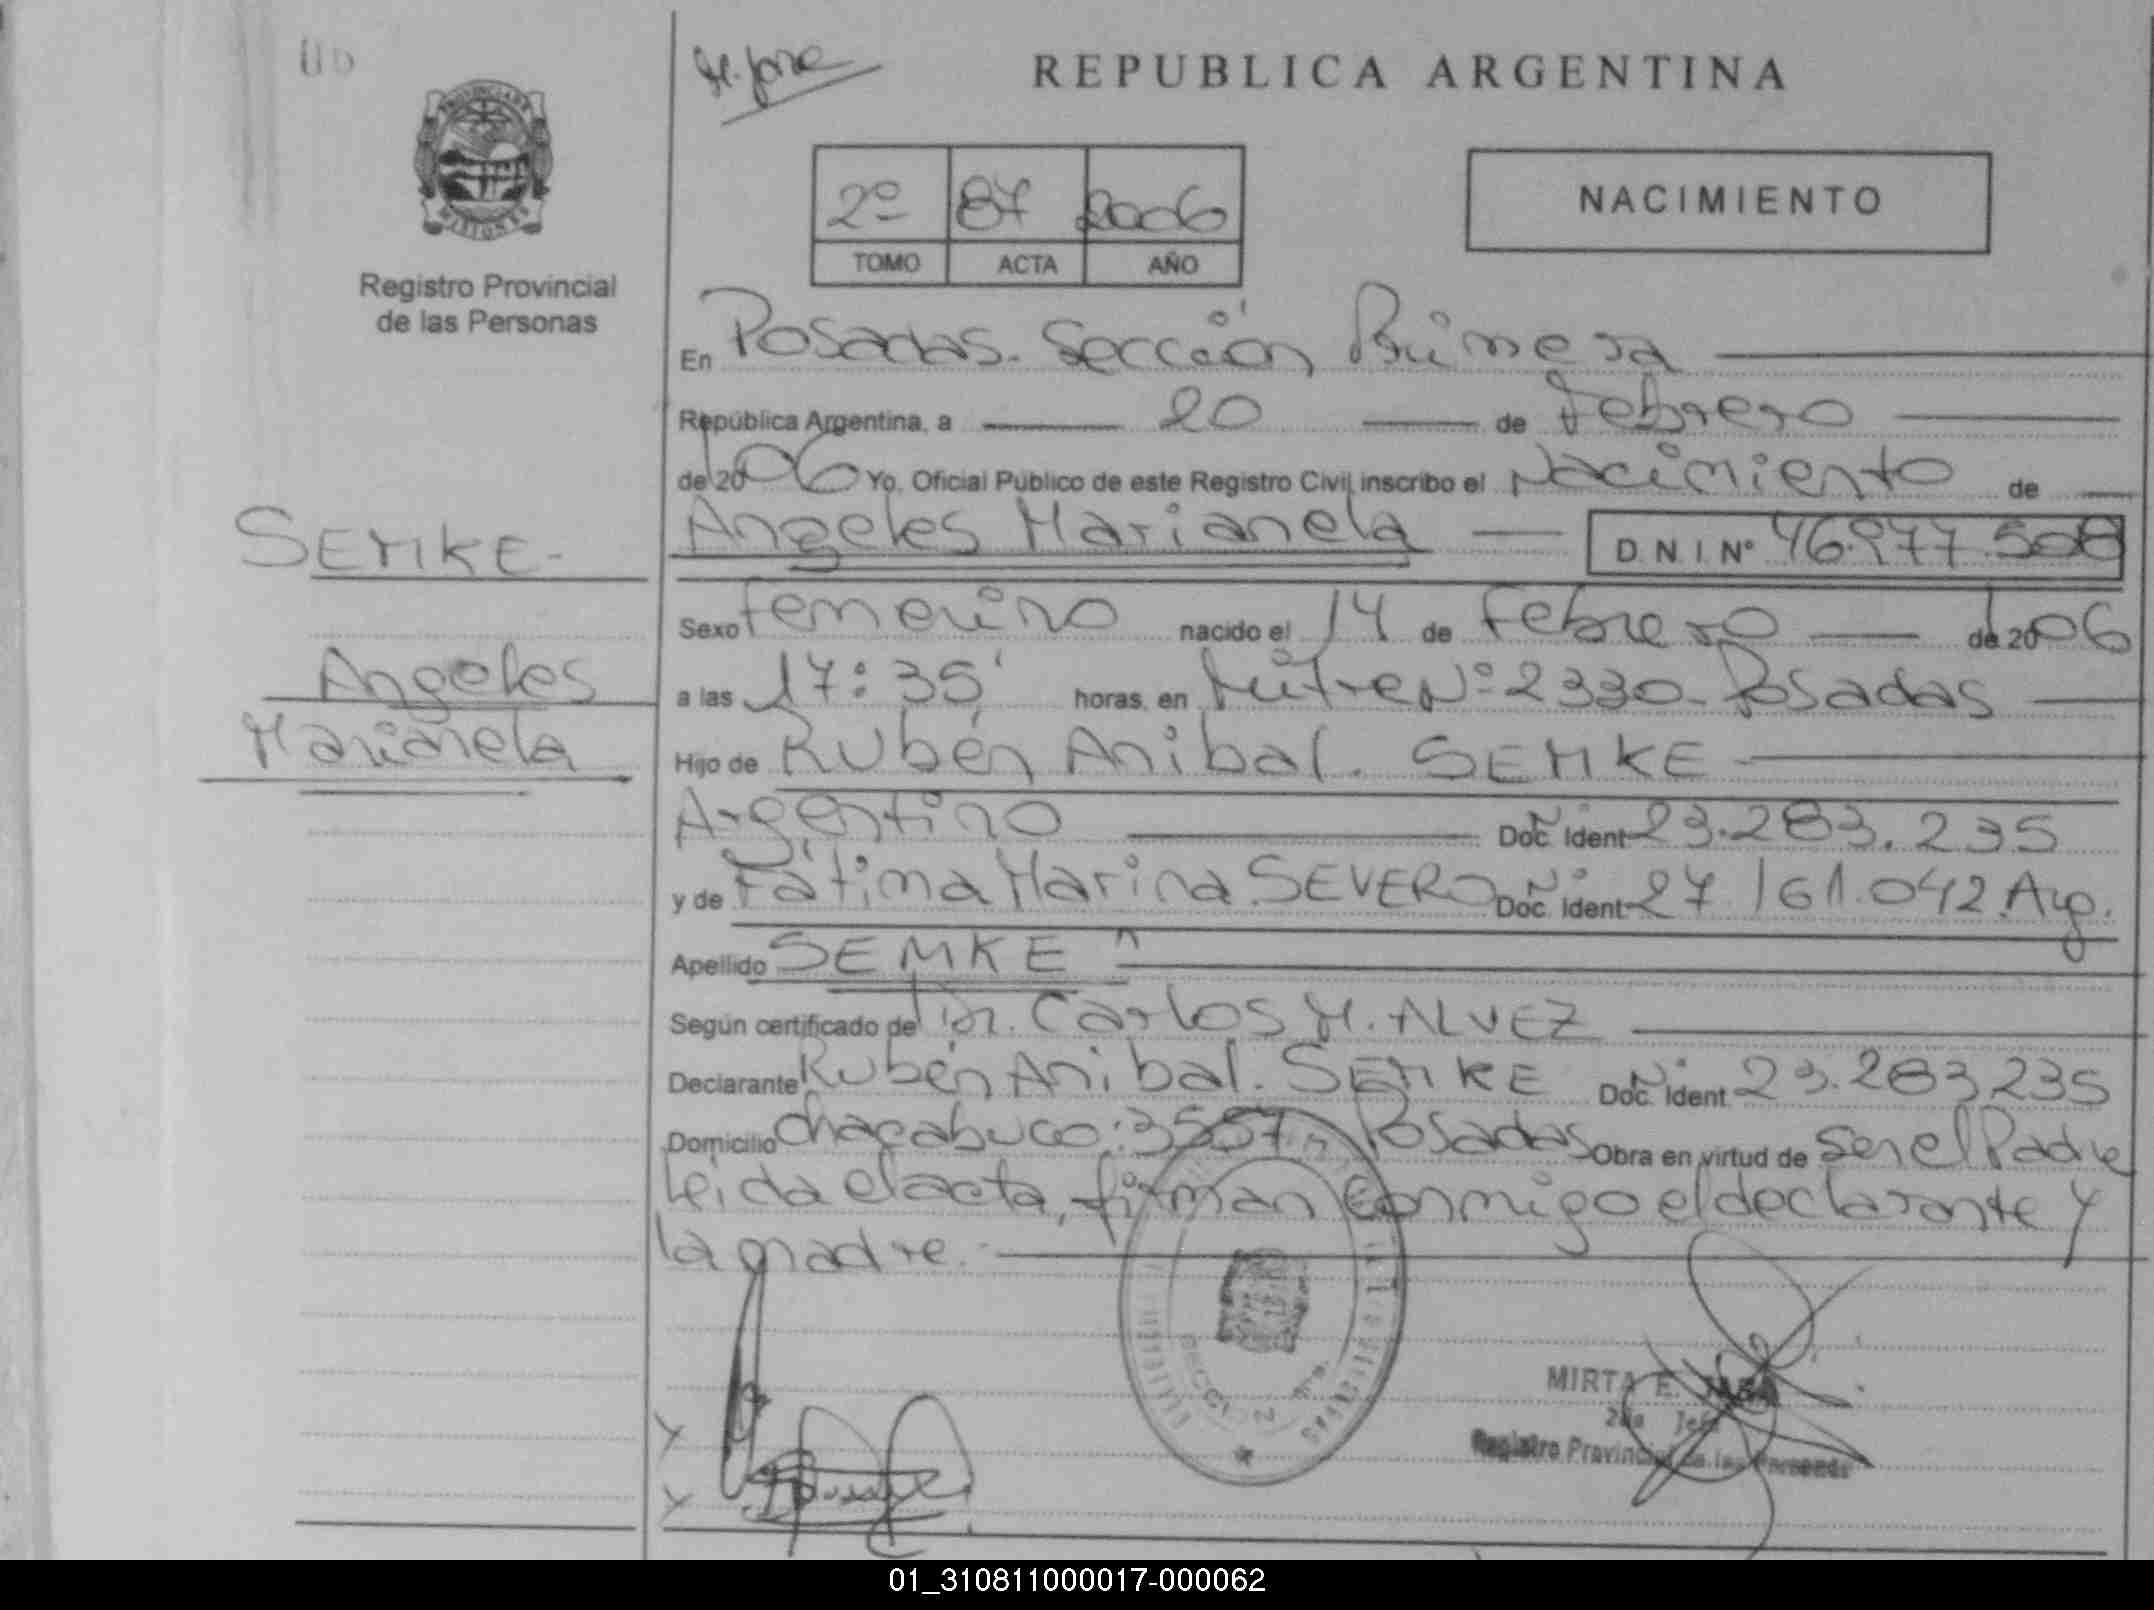 REPUBLICA ARGENTINA
2º 87 2006
TOMO ACTA AÑO
NACIMIENTO
Registro Provincial
de las Personas
En Posadas. Sección Primera
República Argentina, a 20 de Febrero
de 2006 Yo, Oficial Público de este Registro Civil inscribo el Nacimiento de
Angeles Marianela D.N.I. Nº 46.977.508
SEMKE-
Angeles
Marianela
Sexo femenino nacido el 14 de Febrero de 2006
a las 17:35' horas, en Mitre Nº 2330- Posadas
Hijo de Rubén Anibal. SEMKE
Argentino Doc. Ident 23.283.235
y de Fátima Marina SEVERO Doc. Ident 27.161.042. Arg.
Apellido SEMKE
Según certificado de Dr. Carlos M. ALVEZ
Declarante Rubén Anibal. SEMKE Doc. Ident 23.283.235
Domicilio Chacabuco: 3557, Posadas Obra en virtud de ser el Padre
Leida el acta, firman conmigo el declarante y
la madre.-
MIRTA E.
Registro Provincial de las Personas
01_310811000017-000062